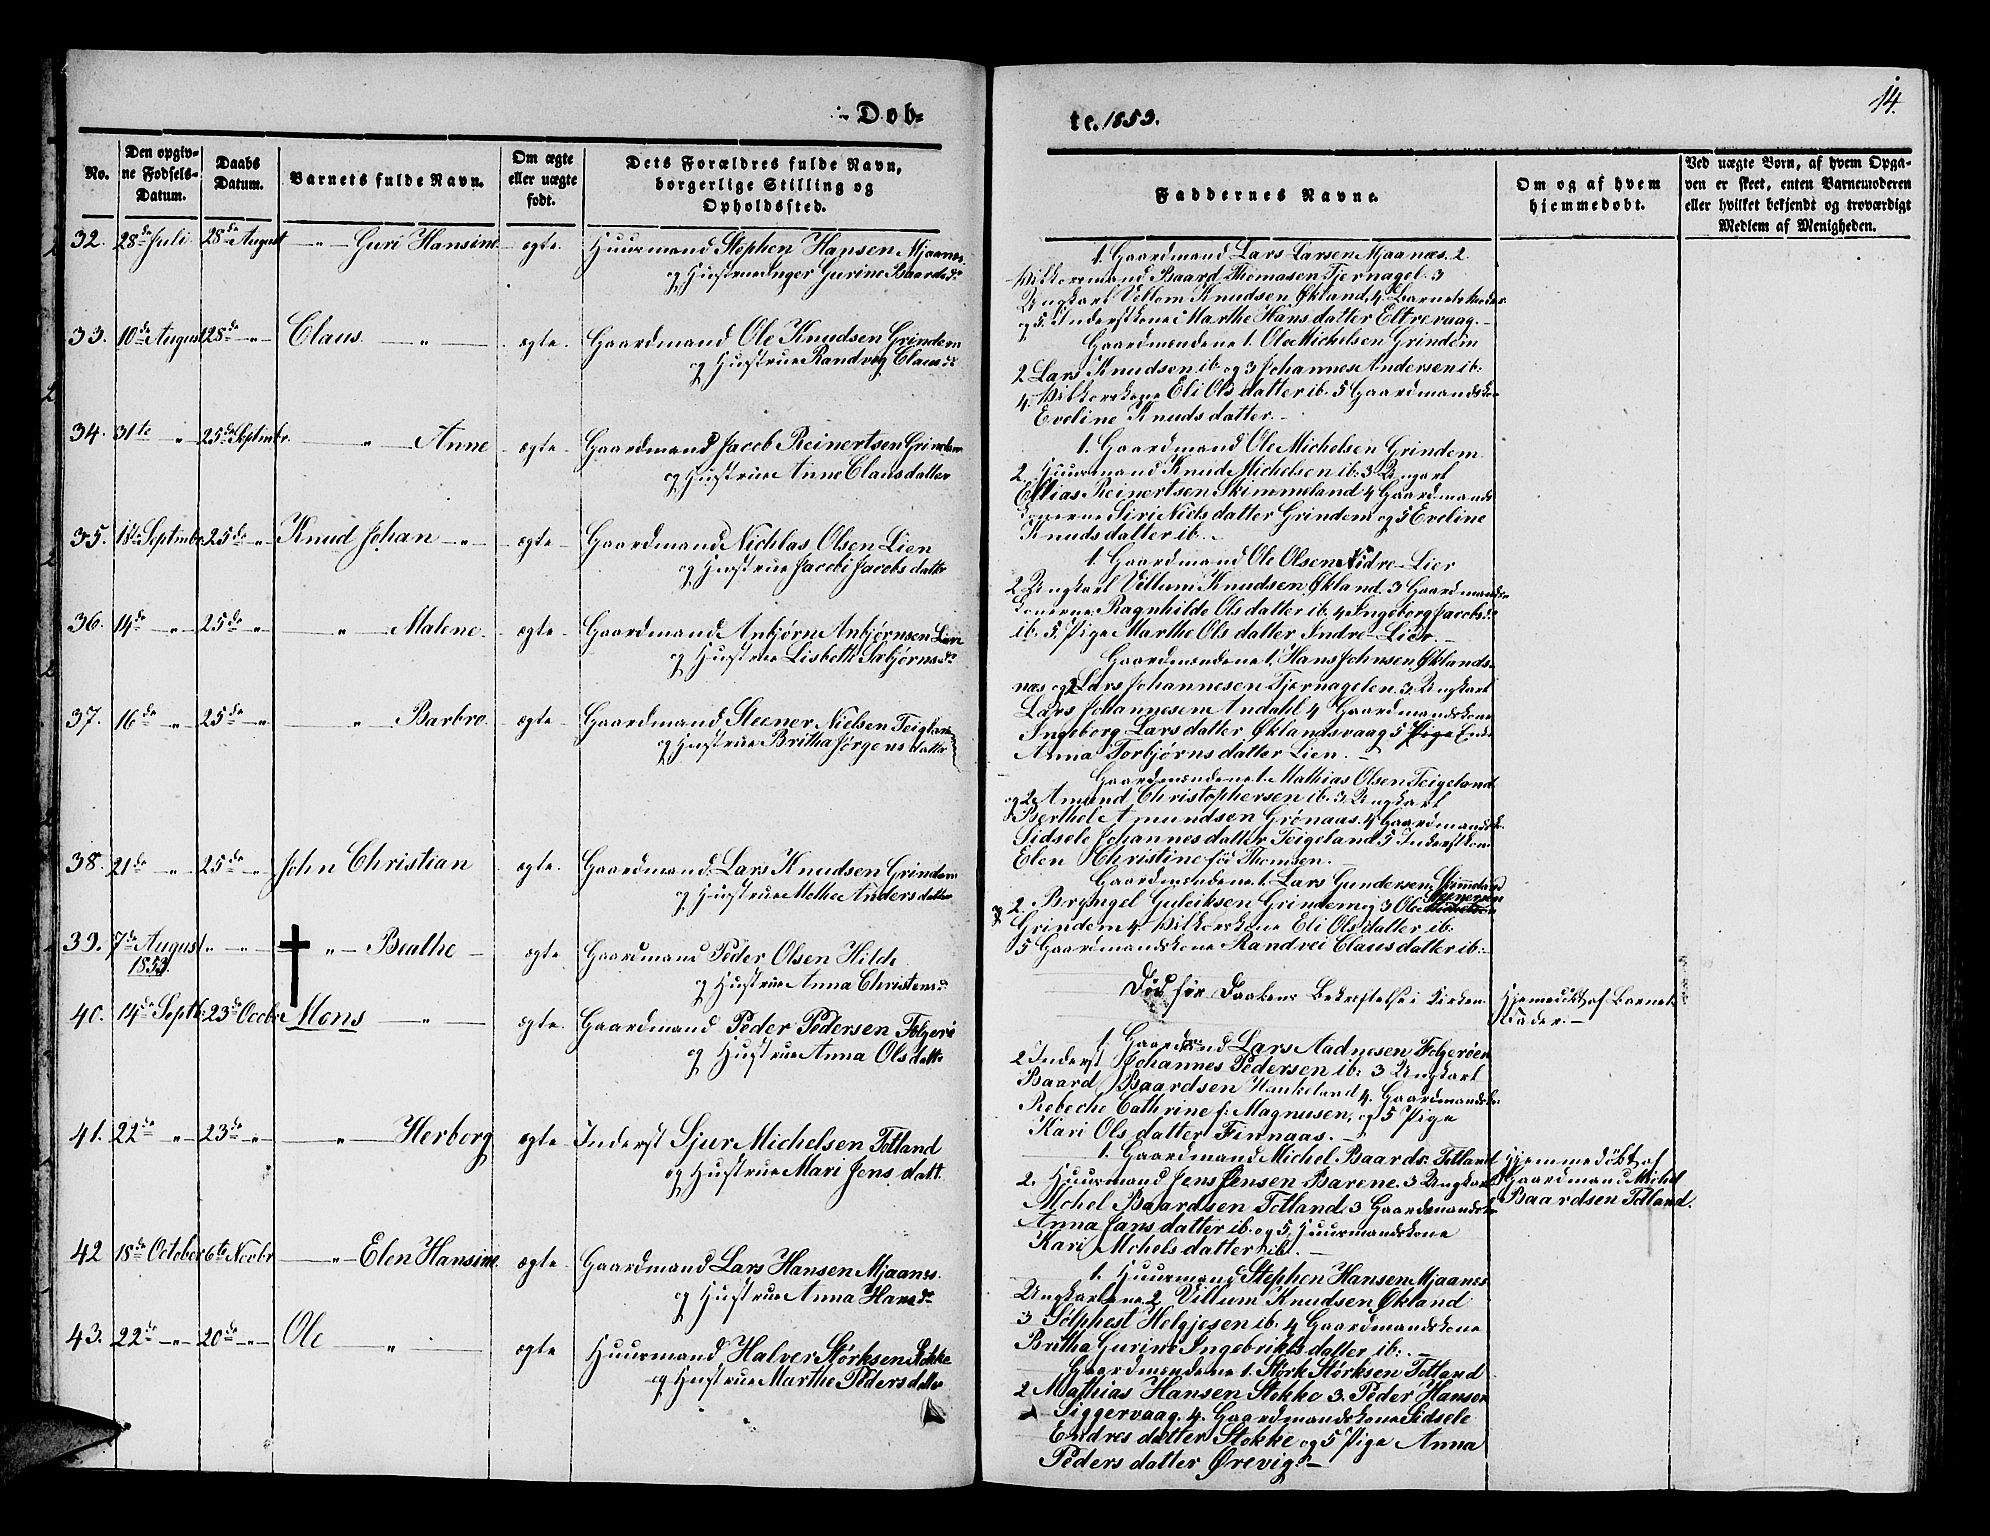 Døb-
te. 1853.
14.
No.
Den opgiv-
ne Fødsels-
Datum.
Daabs
Datum.
Barnets fulde Navn.
Om ægte
eller uægte
født.
Dets Forældres fulde Navn,
borgerlige Stilling og
Opholdssted.
Faddernes Navne.
Om og af hvem
hjemmedøbt.
Ved uægte Børn, af hvem Opga-
ven er skeet, enten Barnemoderen
eller hvilket bekjendt og troværdigt
Medlem af Menigheden.
32. 28de Juli 28de August - " - Guri Hansine ægte. Huurmand Stephen Hansen Mjaanes
og Hustrue Inger Gurine Baardsdr
1. Gaardmand Lars Larsen Mjaanæs. 2
Vilkorsmand Baard Thomasen Tjernagel. 3
Ungkarl Vellom Knudsen Økland, 4. Barnets Fader
og 5. Inderstkone Marthe Hansdatter Eltrevaag. -
33. 10de August 28de " Claus. - " - ægte. Gaardmand Ole Knudsen Grindem
og Hustrue Randveg Clausdr
Gaardmændene 1. Ole Michelsen Grindem
2 Lars Knudsen ib. og 3 Johannes Andersen ib:
4. Vilkorskone Eli Olsdatter ib. 5 Gaardmandsko-
Eveline Knudsdatter. -
34. 31te " 25de Septmbr. - " - Anne ægte. Gaardmand Jacob Reinertsen Grindem
og Hustrue Anne Clausdatter
1. Gaardmand Ole Michelsen Grindem
2. Huurmand Knud Michelsen ib: 3 Ungkarl
Elias Reinertsen Skimmeland 4 Gaardmands
konerne Siri Nielsdatter Grindem og 5 Eveline
Knudsdatter ib. -
35. Septmbr 25de " Knud Johan - " - ægte Gaardmand Nichlas Olsen Lien
og Hustrue Jacobi Jacobsdattr
1. Gaardmand Ole Olsen Nidre-Lier
2 Ungkarl Villum Knudsen Økland. 3 Gaardmands
konerne Ragnhilde Olsdatter ib. 4 Ingeborg Jacobsdr
ib. 5. Pige Marthe Olsdatter Indre-Lier. -
36. 14de " 25de " - " - Malene. ægte. Gaardmand Anbjørn Anbjørnsen Lien
og Hustrue Lisbeth Sæbjørnsdr
Gaardmændene 1. Hans Johnsen Øklands-
næs og 2 Lars Johannesen Tjernagelen. 3. Ungkarl
Lars Johannesen Andahl 4 Gaardmandskone
Ingeborg Larsdatter Øklandsvaag 5 Pige
Anna Torbjørnsdatter Lien. -
37. 16de " 25de " - " - Barbro ægte Gaardmand Steener Nielsen Teigland
og Hustrue Britha Jørgensdatter
Gaardmændene 1. Mathias Olsen Teigeland
og 2 Amund Christophersen ib. 3. Ungkarl
Berthel Amundsen Grønaas. 4 Gaardmandsk.
Sidsele Johannesdatter Teigeland 5 Inderstkone
Elen Christine før Thomsen. -
38. 21de " 25de " John Christian ægte. Gaardmand. Lars Knudsen Grindem
og Hustrue Methe Andersdatter
Gaardmændene 1. Lars Gundersen Skimmeland
2. Bryngel Guleiksen Grindem og 3 Ole Steenersen
Grindem 4. Vilkorskone Eli Olsdatter ib.
5 Gaardmandskone Randvei Clausdatter ib: -
39. 7de August " - " - Beathe - ægte Gaardmand Peder Olsen Hilde
1853. og Hustrue Anna Christensd.
Død før Daabens Bekræftelse i Kirken. Hjemmedøbt af Barnets
Fader. -
40. 14de Septbr 23de Octobr Mons - " - ægte. Gaardmand Peder Pedersen Folgerø
og Hustrue Anna Olsdatte
1. Gaardmand Lars Aadnesen Folgerøen
2 Inderst Johannes Pedersen ib: 3 Ungkarl
Baard Baardsen Hankeland 4. Gaardmandsko-
Rebeche Cathrine f: Magnusen, og 5 Pige
Kari Olsdatter Finnaas. -
41. 22de " 23de " - " - Herborg ægte Inderst Sjur Michelsen Totland
og Hustrue Mari Jensdatt.
1. Gaardmand Michel Baards: Totland Hjemmedøbt af
2. Huurmand Jens Jensen Barene. 3 Ungkarl Gaardmand Michel
Mchel Baardsen Totland. 3 Gaardmandsk- Baardsen Totland.
Anna Jansdatter ib. og 5, Huurmandskone
Kari Mchelsdatter ib. -
42 18de October 6te Novbr. - " - Elen Hansine ægte. Gaardmand Lars Hansen Mjaanes.
og Hustrue Anna Hansdr
1. Huurmand Stephen Hansen Mjaanes
Ungkarlene 2 Villum Knudsen Økland
3 Sølphest Helgjesen ib. 4 Gaardmandskone
Britha Gurine Ingebriktsdatter ib:. -
43. 22de " 20de " Ole - " - ægte Huurmand Halver Størksen Stokke
og Hustrue Marthe Pedersdatter
Gaardmændene 1. Størk Størksen Totland
2 Mathias Hansen Stokke 3. Peder Hansen
Siggervaag. 4. Gaardmandskone Sidsele
Endresdatter Stokke og 5 Pige Anna
Pedersdatter Ørevig. -